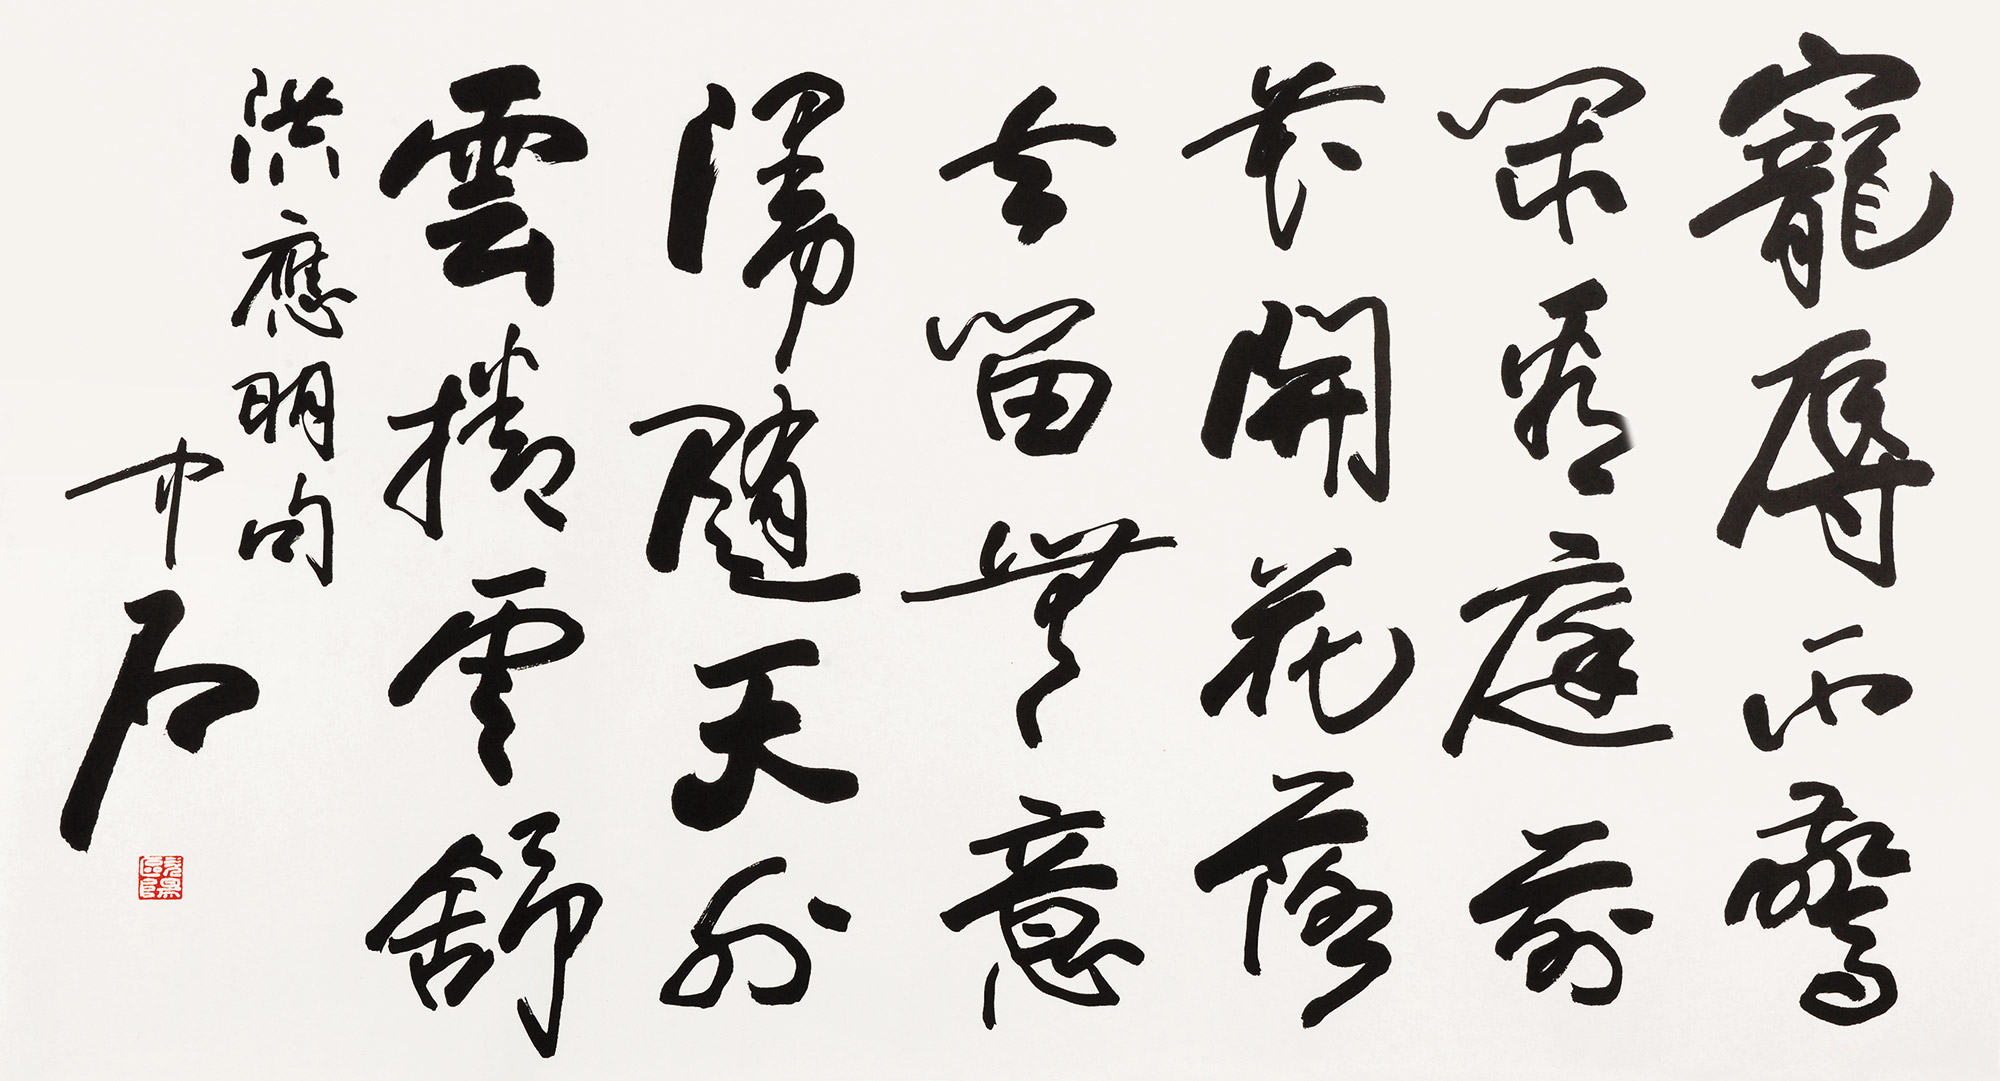 寵辱不驚
閑看庭前
花開花落
去留無意
漫隨天外
雲捲雲舒
洪應明句
中石